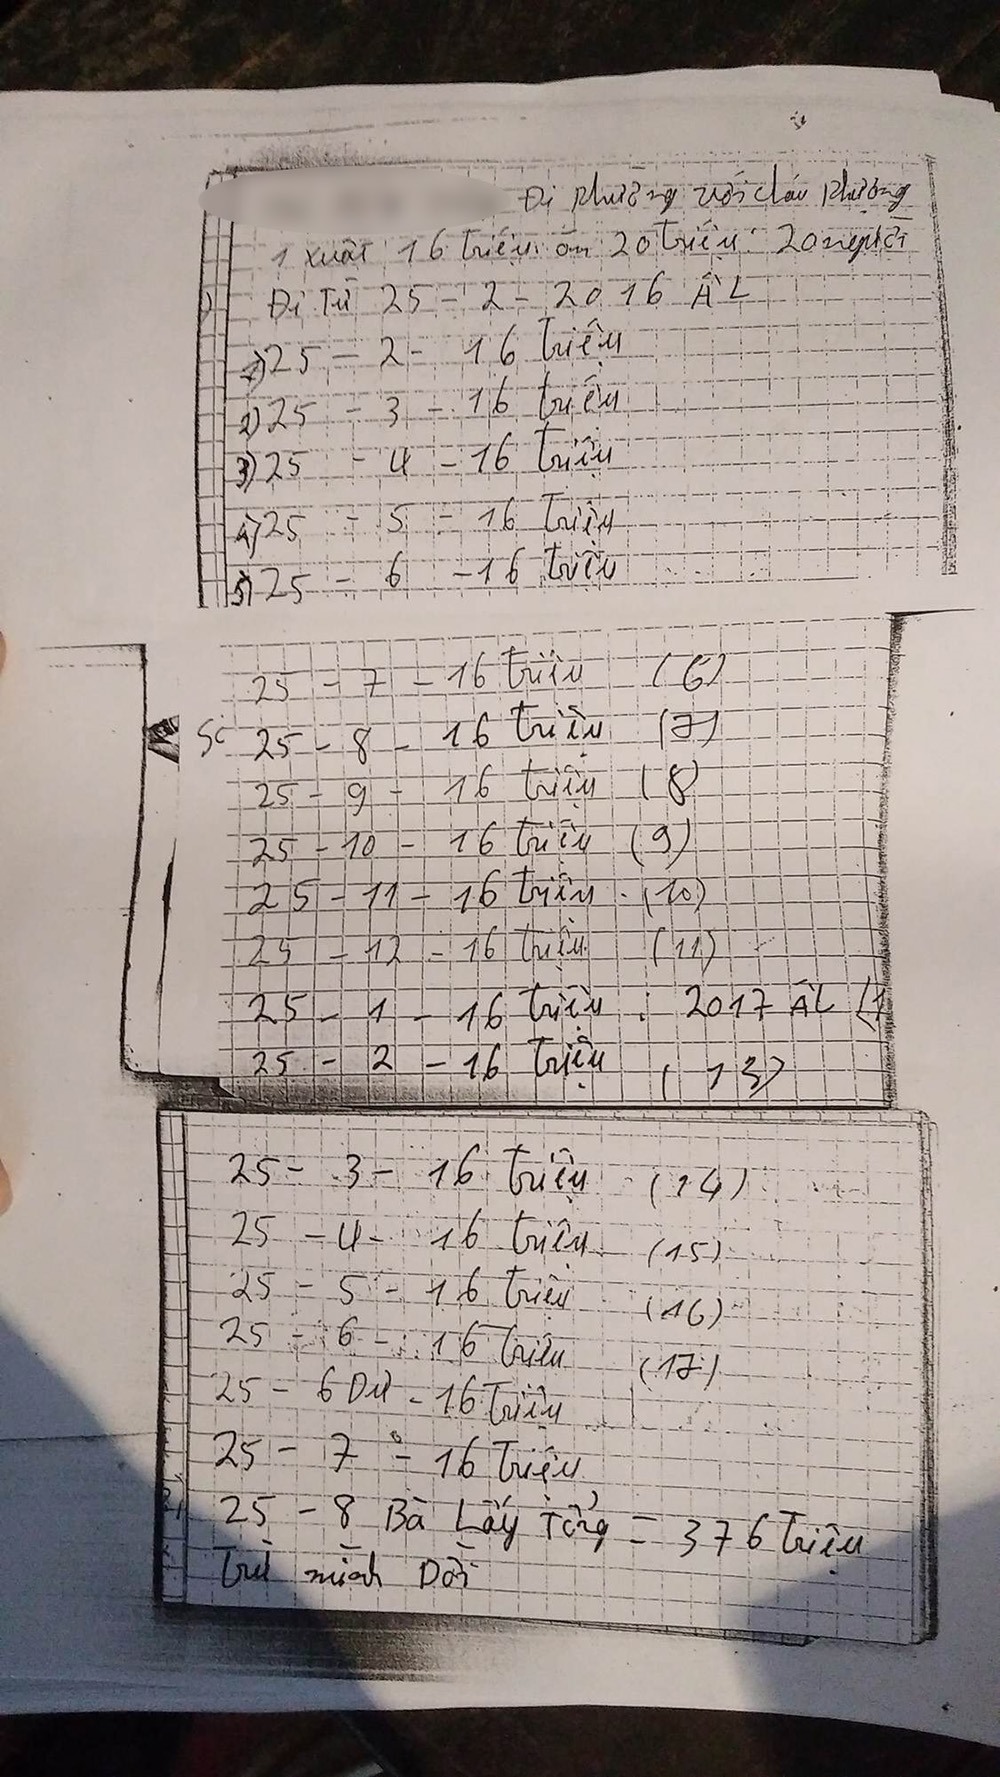 Đi phường với cháu Phường
1 xuất 16 triệu ăn 20 triệu: 20 người
Đi Từ 25 - 2 - 2016 ÂL
1) 25 - 2 - 16 triệu
2) 25 - 3 - 16 triệu
3) 25 - 4 - 16 triệu
4) 25 - 5 - 16 Triệu
5) 25 - 6 - 16 triệu
25 - 7 - 16 triệu (6)
25 - 8 - 16 triệu (7)
25 - 9 - 16 triệu (8
25 - 10 - 16 triệu (9)
25 - 11 - 16 triệu . (10)
25 - 12 - 16 triệu (11)
25 - 1 - 16 triệu : 2017 ÂL (1
25 - 2 - 16 triệu (13)
25 - 3 - 16 triệu (14)
25 - 4 - 16 triệu (15)
25 - 5 - 16 triệu (16)
25 - 6 - 16 triệu (17)
25 - 6 Dư - 16 Triệu
25 - 7 - 16 Triệu
25 - 8 Bà Lấy Tổng = 376 Triệu
Trừ mình Dồi